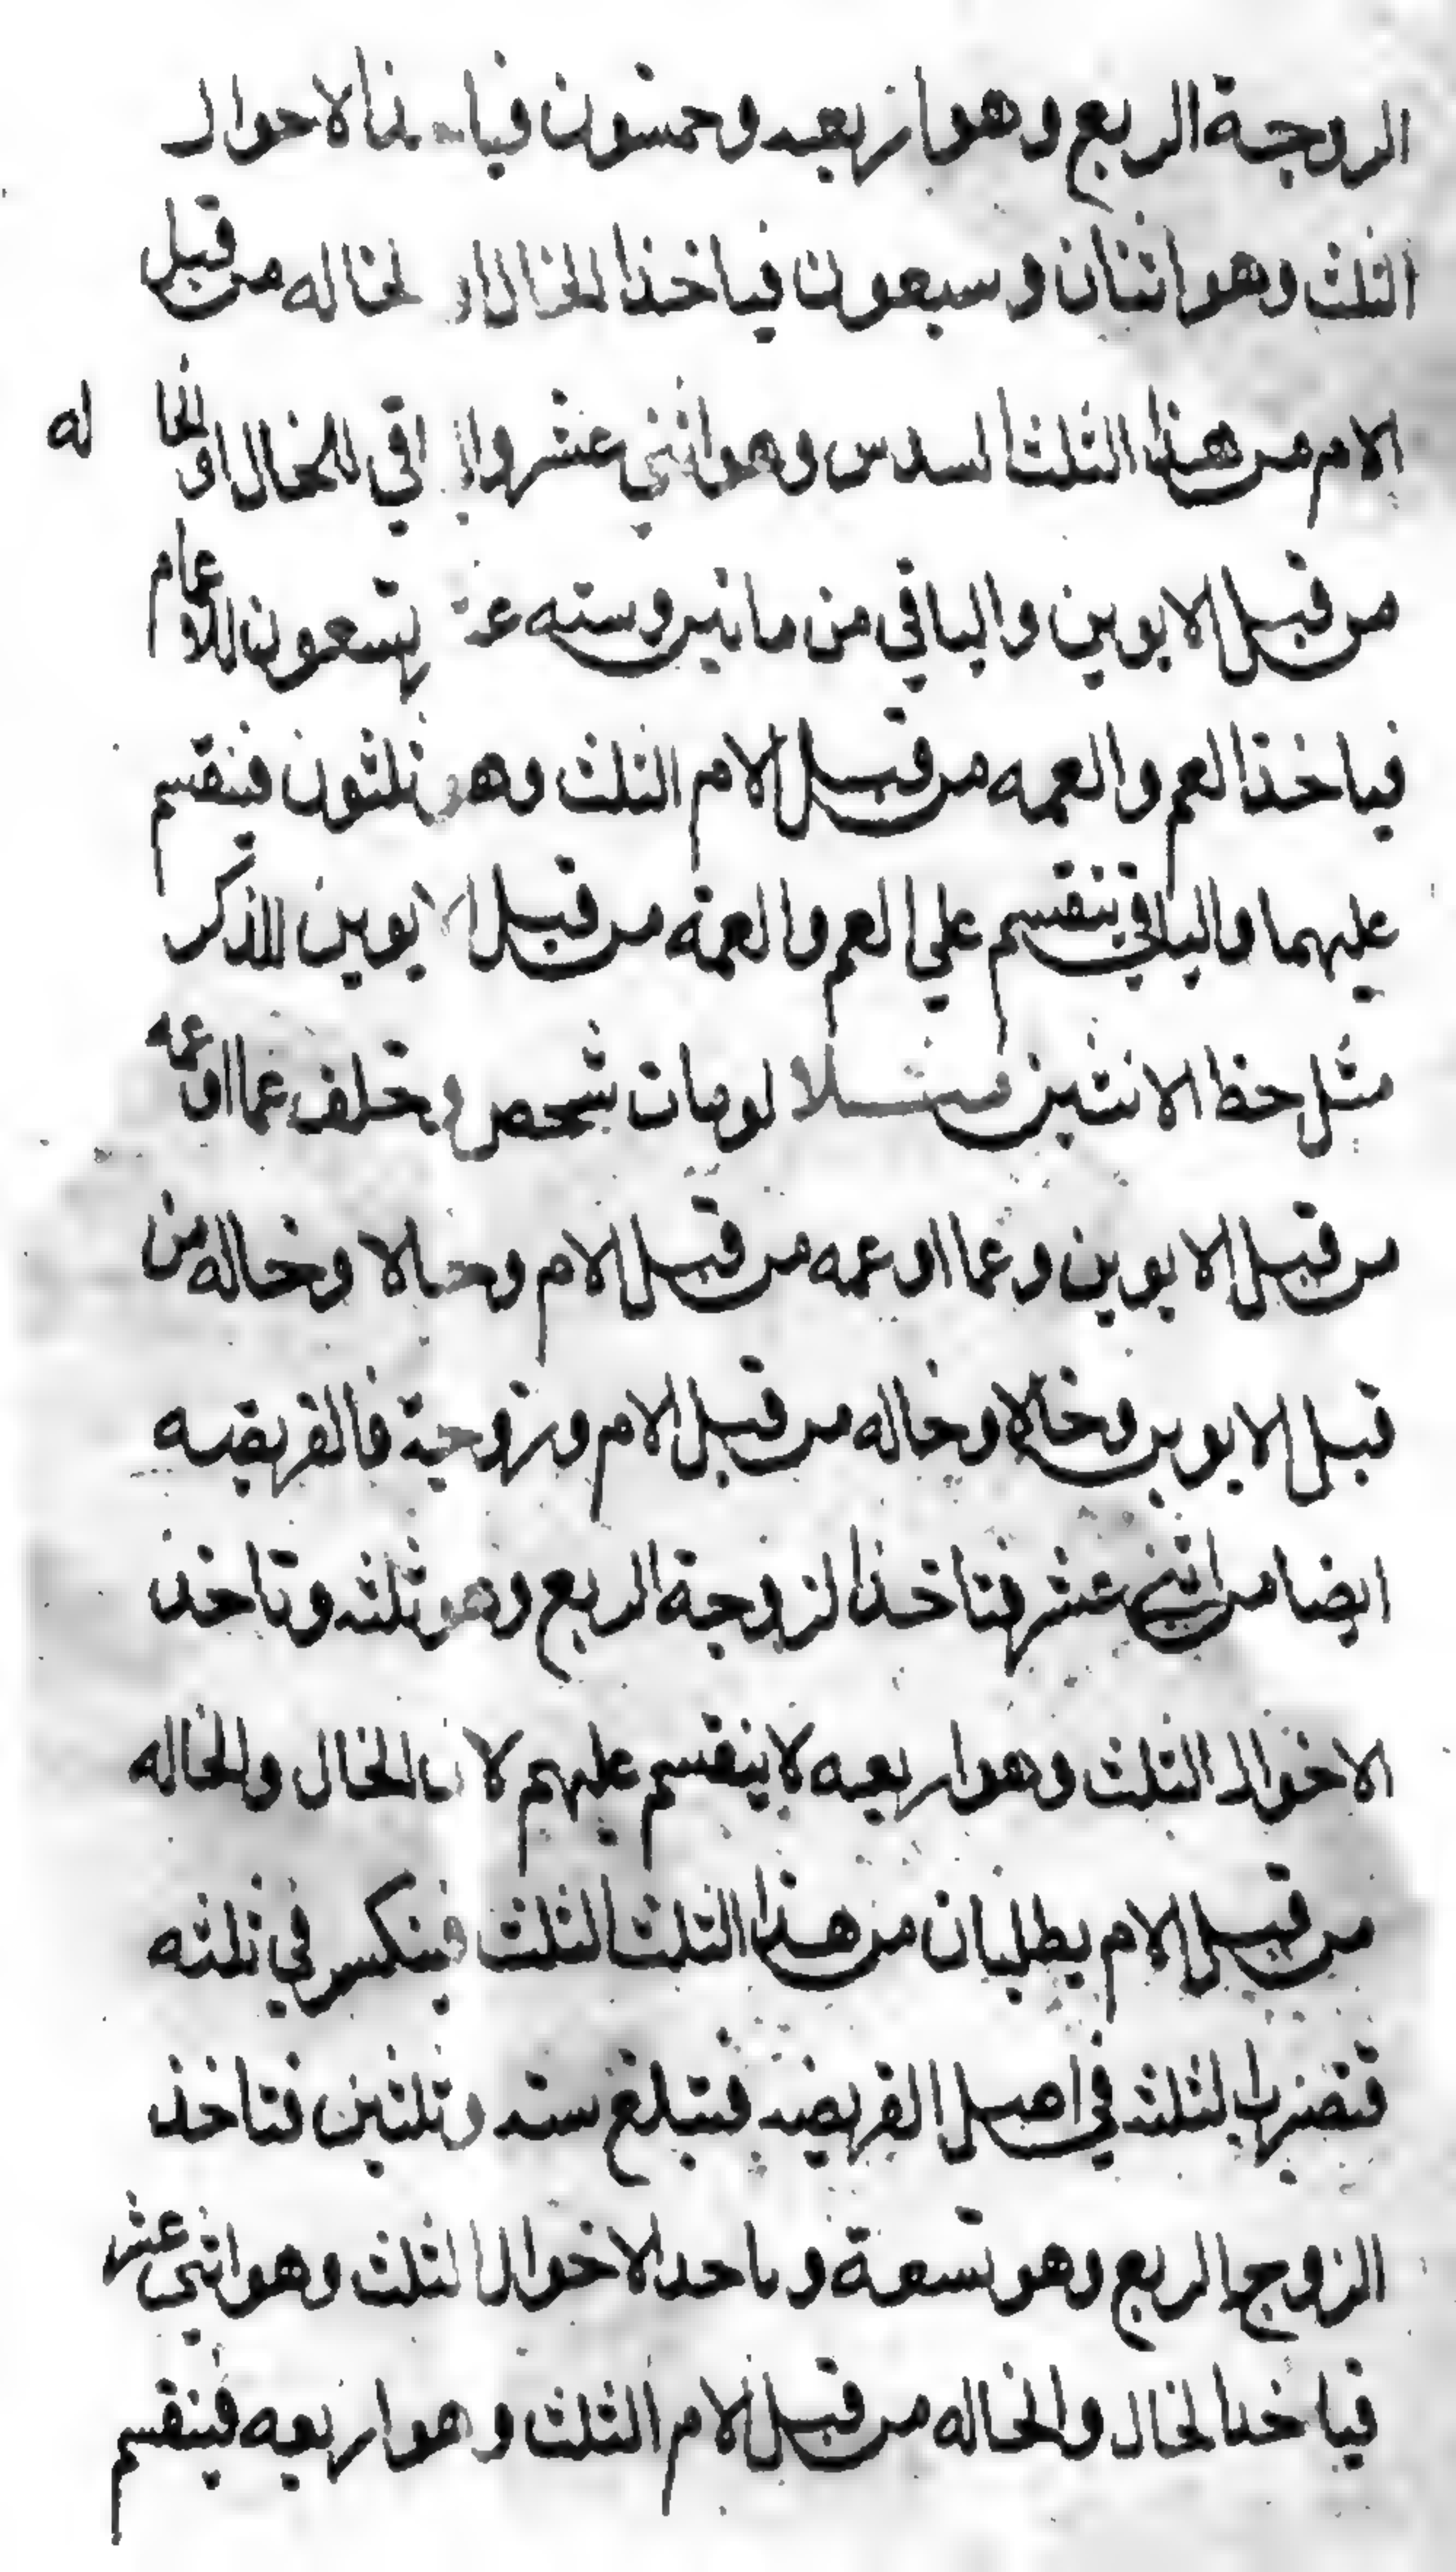 الزوجة الربع وهو اربعه وخمسون فياخذ الاخوال
الثلث وهو اثنان وسبعون فياخذ الخال او الخاله من قبل
الام من هذا الثلث السدس وهو اثني عشر والباقي للخال او الخا له
من قبل الابوين والباقي من ماتين وسته عشر تسعون للاعمام
فياخذ العم والعمه من قبل الام الثلث وهو ثلثون فينقسم
عليهما والباقي ينقسم علي العم والعمة من قبل الابوين للذكر
مثل حظ الانثيين لو مات شخص وخلف عما او عمه
من قبل الابوين وعما او عمه من قبل الام وخالا وخاله من
قبل الابوين وخالا وخاله من قبل الام وزوجة فالفريضه
ايضا من اثني عشر فتاخذ الزوجة الربع وهو ثلثه وتاخذ
الاخوال الثلث وهو اربعه لا ينقسم عليهم لان الخال والخاله
من قبل الام يطلبان من هذا الثلث الثلث فينكسر في ثلثه
فتضرب الثلثه في اصل الفريضه فتبلغ سته وثلثين فتاخذ
الزوجه الربع وهو تسعة وياخد الاخوال الثلث وهو اثني عشر
فياخذ الخال والخاله من قبل الام الثلث وهو اربعه فينقسم